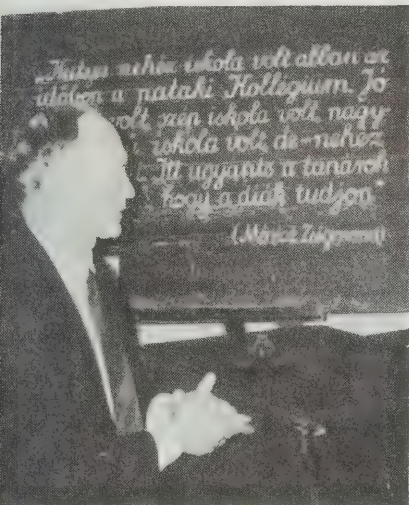 „Kutya nehéz iskola volt abban az
időben a pataki Kollégium. Jó
volt szép iskola volt nagy-
iskola volt de-nehéz
Itt ugyanis a tanárok
hogy a diák tudjon"
(Móricz Zsigmond)